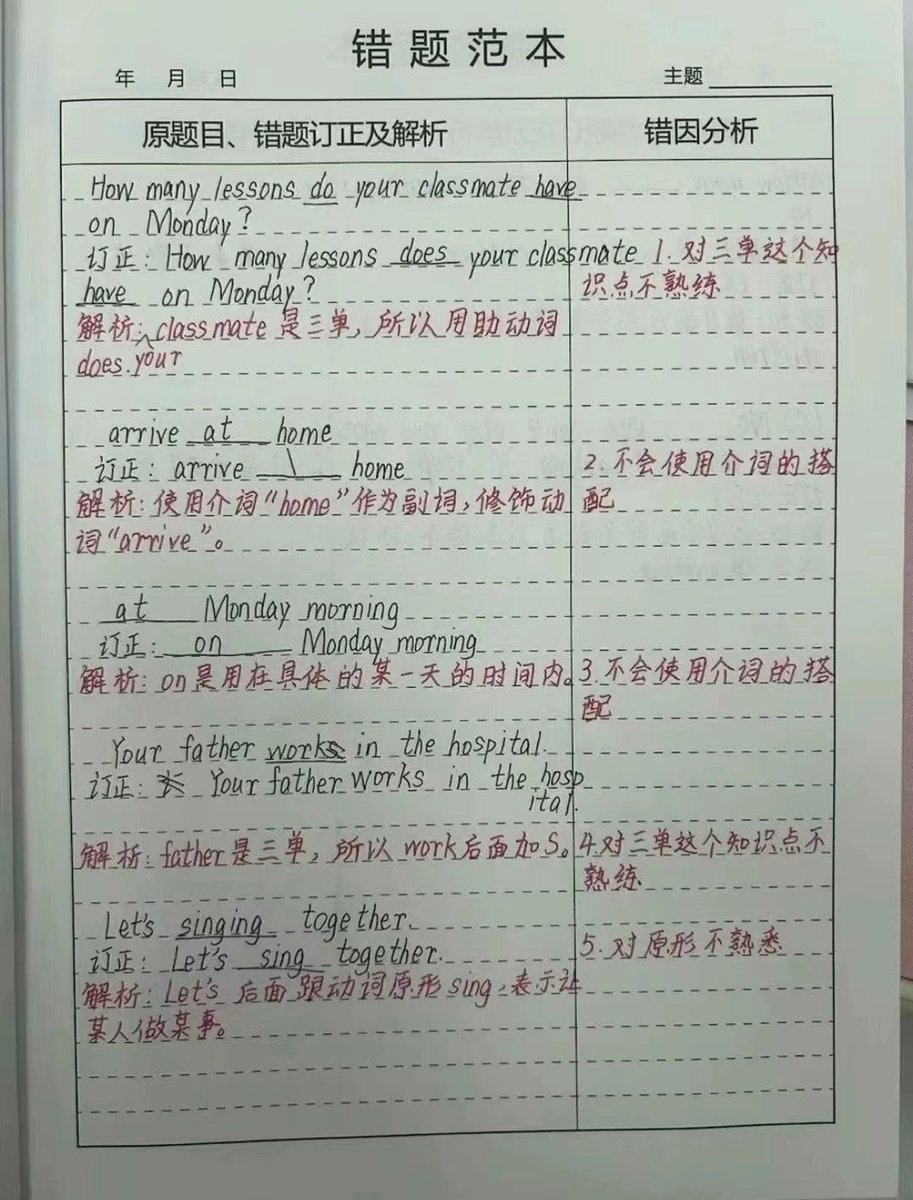 错题范本
年 月 日 主题
原题目、错题订正及解析 错因分析
How many lessons do your classmate have
on Monday?
订正: How many lessons does your classmate
have on Monday?
解析: your classmate 是三单, 所以用助动词
does.
1. 对三单这个知
识点不熟练
arrive at home
订正: arrive \ home
解析: 使用介词“home”作为副词, 修饰动
词“arrive”。
2. 不会使用介词的搭
配
at Monday morning
订正: on Monday morning
解析: on是用在具体的某一天的时间内。
3. 不会使用介词的搭
配
Your father works in the hospital.
订正: Your father works in the hosp
ital.
解析: father是三单, 所以 work后面加S。
4. 对三单这个知识点不
熟练
Let's singing together.
订正: Let's sing together.
解析: Let's 后面跟动词原形 sing, 表示让
某人做某事。
5. 对原形不熟悉